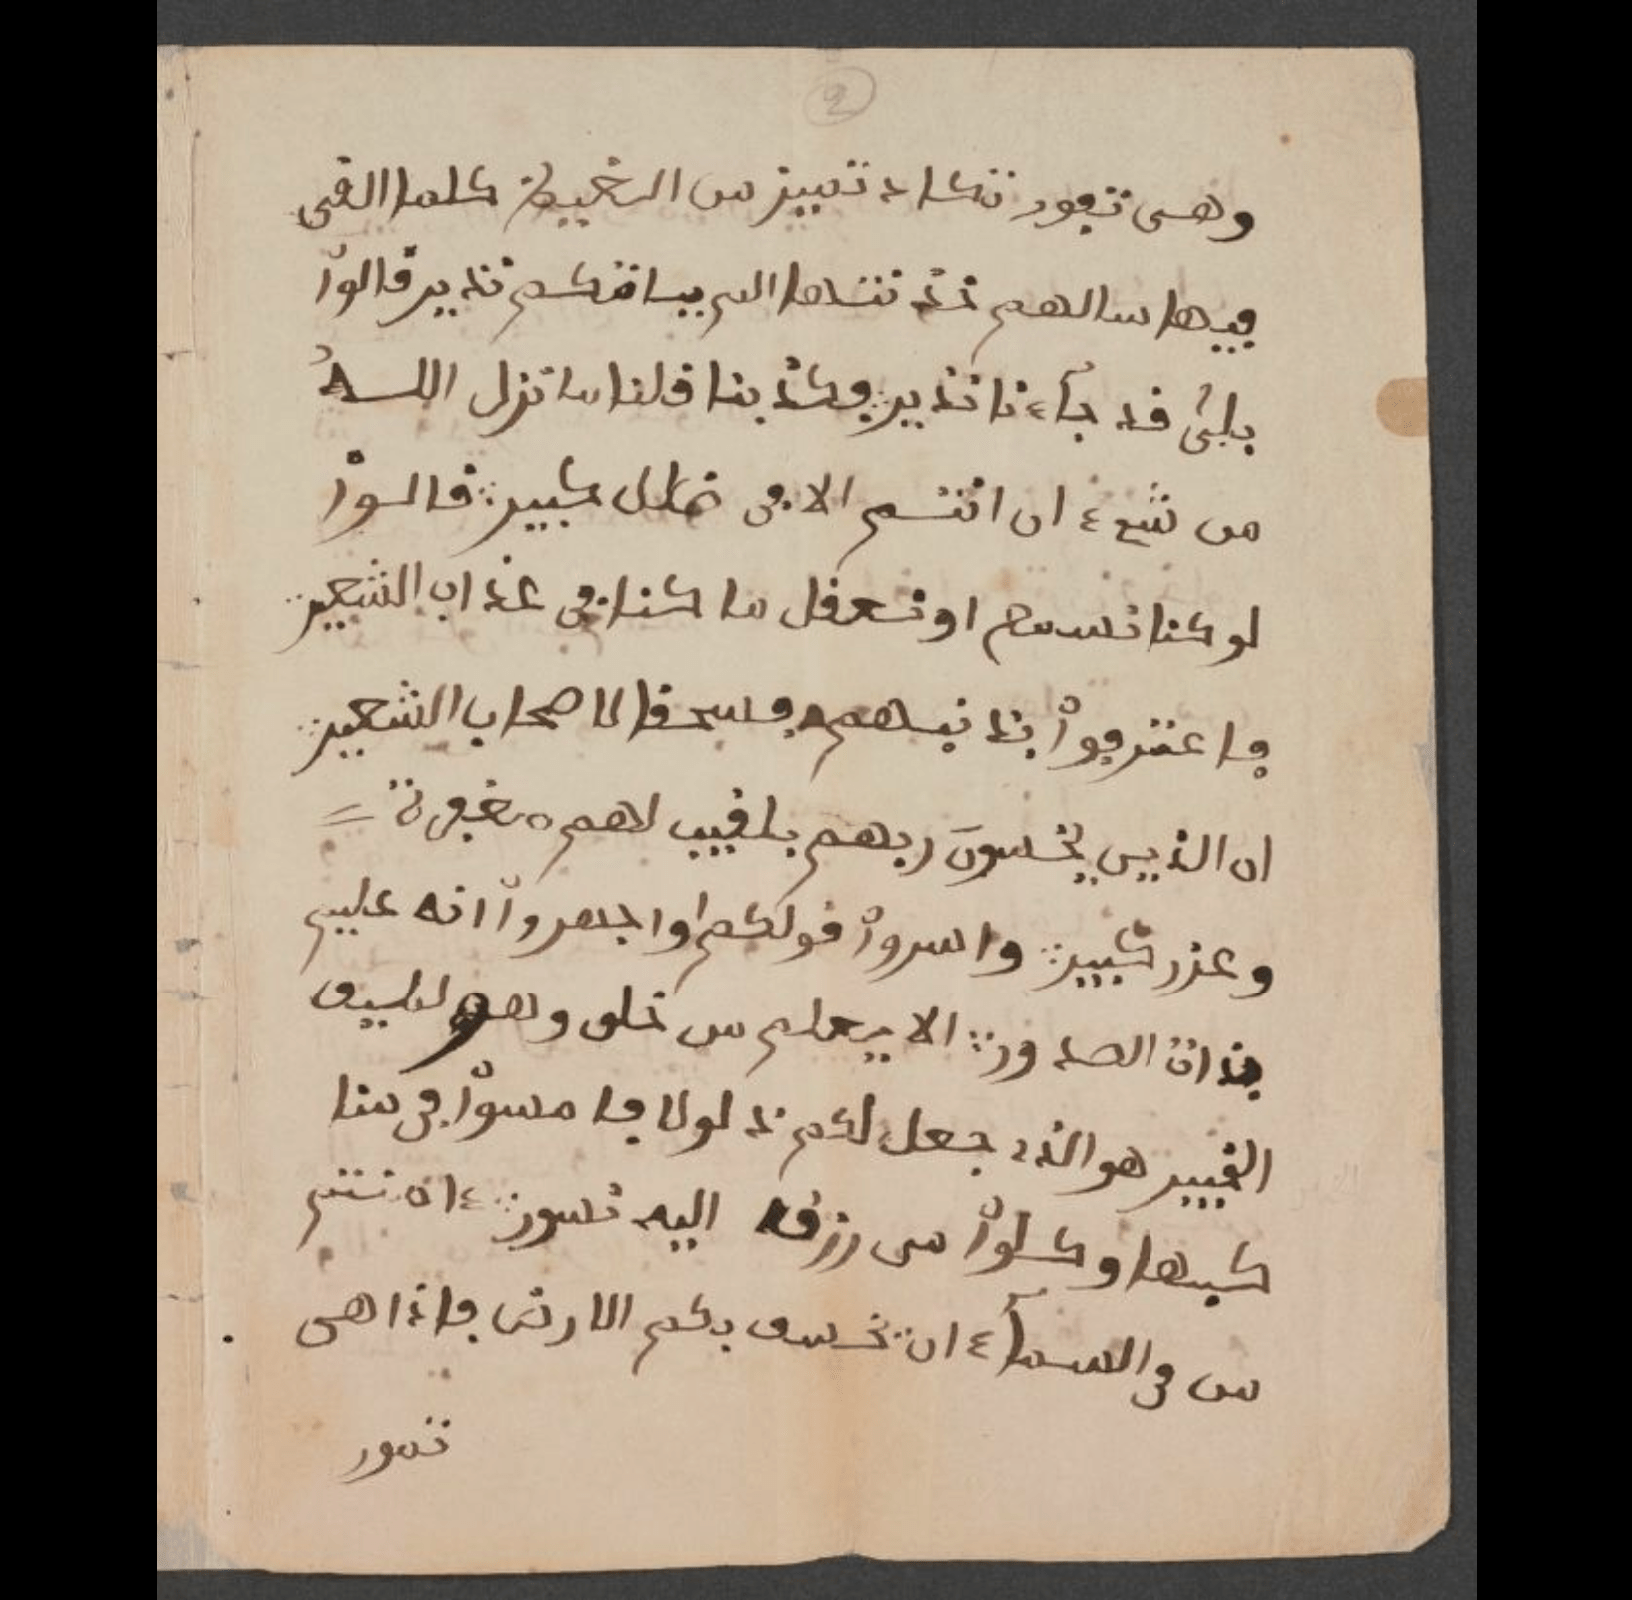 2
وهى تفور تكاد تميز من الغيظ كلما القى
فيها سالهم خذنتها الم يياتكم نذير قالوا
بلى قد جآءنا نذير فكذبنا وقلنا ما نزل الله
من شىء ان انتم الا فى ضلل كبير قالوا
لو كنا نسمع او نعقل ما كنا فى عذاب الشعير
فاعترفوا بذنبهم فسحقا لاصحاب الشعير
ان الذين يخشون ربهم بلغيب لهم مغفرة
وعزر كبير واسروا قولكم او اجهروا انه عليم
بذات الصدور الا يعلم من خلق وهو لطيف
الخبير هو الذ جعل لكم ذلولا فامسوا فى منا
كبها وكلوا من رزقه اليه نسور ءانتم
من فى السمآء ان يخسف بكم الارض فاذا هى
تمور